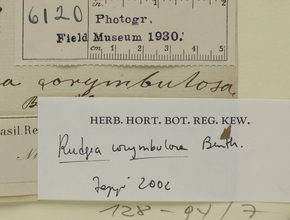 6120
Photogr.
Field Museum 1930.
cm. 1 2 3 4 5
a corymbulosa.
HERB. HORT. BOT. REG. KEW.
Rudgea corymbulosa Benth.
asil. Re
Zappi 2002
128-94/7